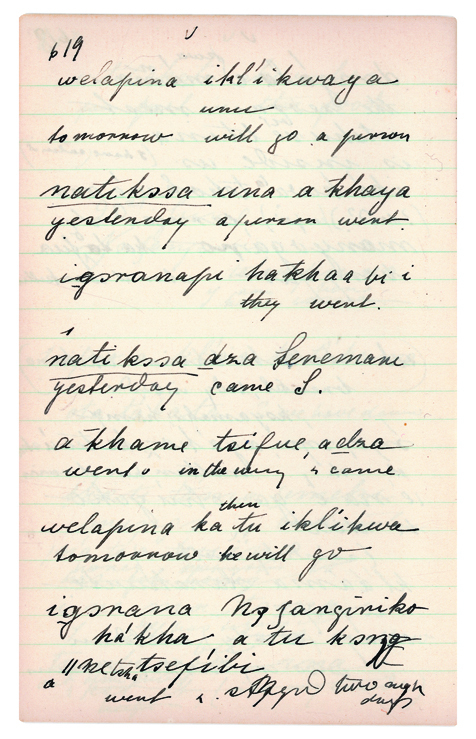 619
welapina ikl'ikwaya
unu
tomorrow will go a person
natikssa una a khaya
yesterday a person went.
igsranapi hakhaa bi i
they went.
natikssa dza Seremani
yesterday came S.
a khame tsifue adza
went in the way & came
then
welapina ka tu ikl'ikwa
tomorrow he will go
igsrana
hákha a tu
tsefíbi
went & stayed two
days